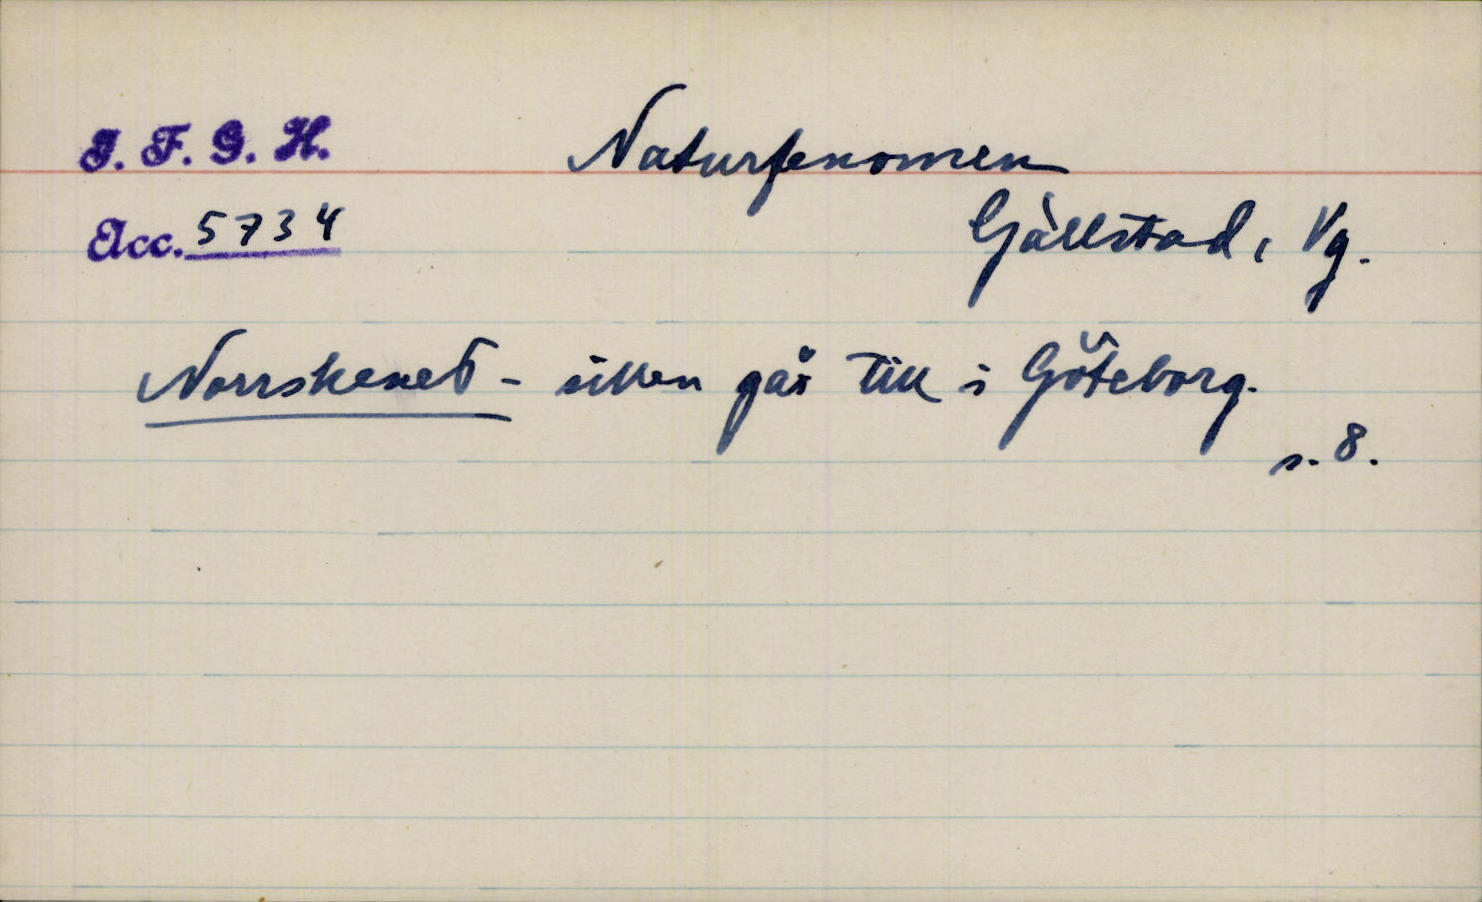 I. F. G. H.
Naturfenomen
Acc. 5734
Gällstad, Vg.
Norrskenet - sillen går till i Göteborg.
s. 8.